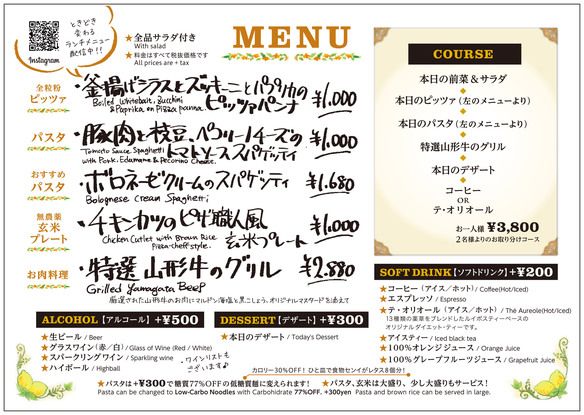 ときどき
変わる
ランチメニュー
配信中!!
Instagram
★全品サラダ付き
With salad
★料金はすべて税抜価格です
All prices are + tax
MENU
全粒粉
ピッツァ
・釜揚げシラスとズッキーニとパプリカの
Boiled Whitebait, Zucchini
& Paprika, on Pizza panna
ピッツァパンナ
¥1,000
パスタ
・豚肉と枝豆、ペコリーノチーズの
Tomato Sauce Spaghetti
with Pork, Edamame & Pecorino Cheese.
トマトソーススパゲッティ
¥1,000
おすすめ
パスタ
・ボロネーゼクリームのスパゲッティ
Bolognese Cream Spaghetti
¥1,680
無農薬
玄米
プレート
・チキンカツのピザ職人風
Chicken Cutlet with Brown Rice
Pizza-chef style.
玄米プレート
¥1,000
お肉料理
・特選 山形牛のグリル
Grilled Yamagata Beef
¥2,880
厳選された山形牛のお肉にマルドン海塩と黒こしょう、オリジナルマスタードを添えて
COURSE
本日の前菜&サラダ
本日のピッツァ(左のメニューより)
本日のパスタ(左のメニューより)
特選山形牛のグリル
本日のデザート
コーヒー
OR
テ・オリオール
お一人様 ¥3,800
2名様よりのお取り分けコース
ALCOHOL【アルコール】+¥500
★生ビール / Beer
★グラスワイン(赤/白) / Glass of Wine (Red / White)
★スパークリングワイン / Sparkling wine
★ハイボール / Highball
・ワインリストも
ございます♪
DESSERT【デザート】+¥300
★本日のデザート / Today's Dessert
SOFT DRINK【ソフトドリンク】+¥200
★コーヒー(アイス/ホット) / Coffee(Hot/Iced)
★エスプレッソ / Espresso
★テ・オリオール(アイス/ホット) / Thé Aureole(Hot/Iced)
13種類の薬草をブレンドしたルイボスティーベースの
オリジナルダイエット・ティーです。
★アイスティー / Iced black tea
★100%オレンジジュース / Orange Juice
★100%グレープフルーツジュース / Grapefruit Juice
カロリー30%OFF! ひと皿で食物センイがレタス8個分!
★パスタは+¥300で糖質77%OFFの低糖質麺に変えられます!
★パスタ、玄米は大盛り、少し大盛りもサービス!
Pasta can be changed to Low-Carbo Noodles with Carbohidrate 77%OFF. +300yen
Pasta and brown rice can be served in large.